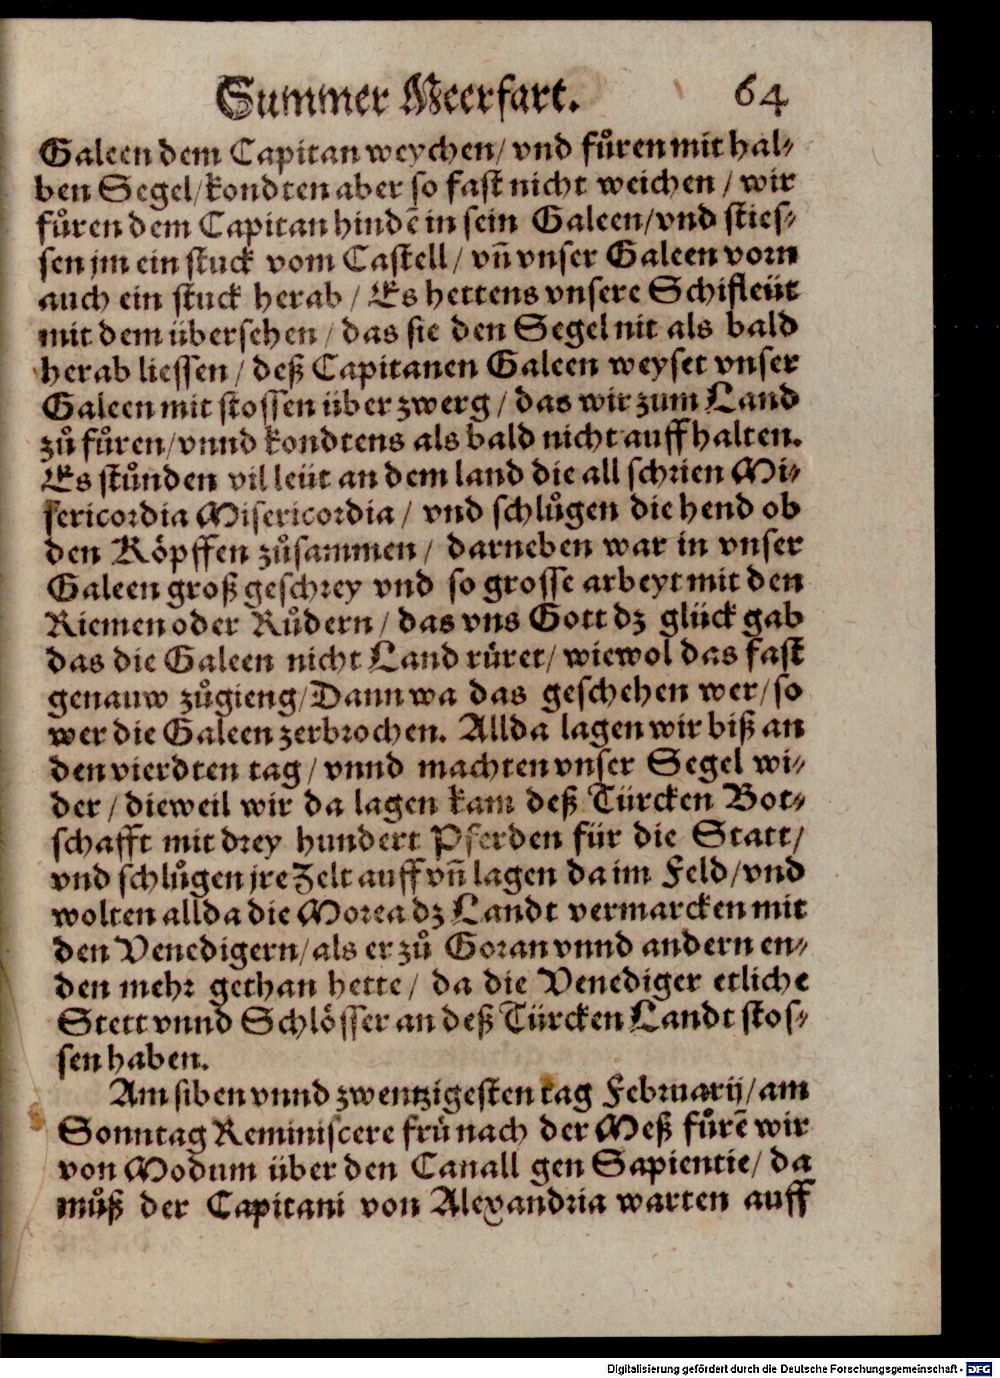 Summer Meerfart. 64
Galeen dem Capitan weychen/ vnd fůren mit hal-
ben Segel/ kondten aber so fast nicht weichen / wir
fůren dem Capitan hindẽ in sein Galeen/vnd sties-
sen jm ein stuck vom Castell / vñ vnser Galeen vorn
auch ein stuck herab / Es hettens vnsere Schifleüt
mit dem übersehen / das sie den Segel nit als bald
herab liessen / deß Capitanen Galeen weyset vnser
Galeen mit stossen über zwerg / das wir zum Land
zů fůren/vnnd kondtens als bald nicht auffhalten.
Es stůnden vil leüt an dem land die all schrien Mi-
sericordia Misericordia / vnd schlůgen die hend ob
den Köpffen zůsammen / darneben war in vnser
Galeen groß geschrey vnd so grosse arbeyt mit den
Riemen oder Růdern / das vns Gott dz glück gab
das die Galeen nicht Land růret/ wiewol das fast
genauw zůgieng/Dann wa das geschehen wer/so
wer die Galeen zerbrochen. Allda lagen wir biß an
den vierdten tag / vnnd machten vnser Segel wi-
der / dieweil wir da lagen kam deß Türcken Bot-
schafft mit drey hundert Pferden für die Statt/
vnd schlůgen jre Zelt auff vñ lagen da im Feld/vnd
wolten allda die Morea dz Landt vermarcken mit
den Venedigern/als er zů Goran vnnd andern en-
den mehr gethan hette/ da die Venediger etliche
Stett vnnd Schlösser an deß Türcken Landt stos-
sen haben.
Am siben vnnd zwentzigesten tag Februarij/am
Sonntag Reminiscere frů nach der Meß fůrẽ wir
von Modum über den Canall gen Sapientie/ da
můß der Capitani von Alexandria warten auff
Digitalisierung gefördert durch die Deutsche Forschungsgemeinschaft - DFG